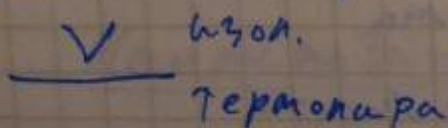 V изол.
термопара